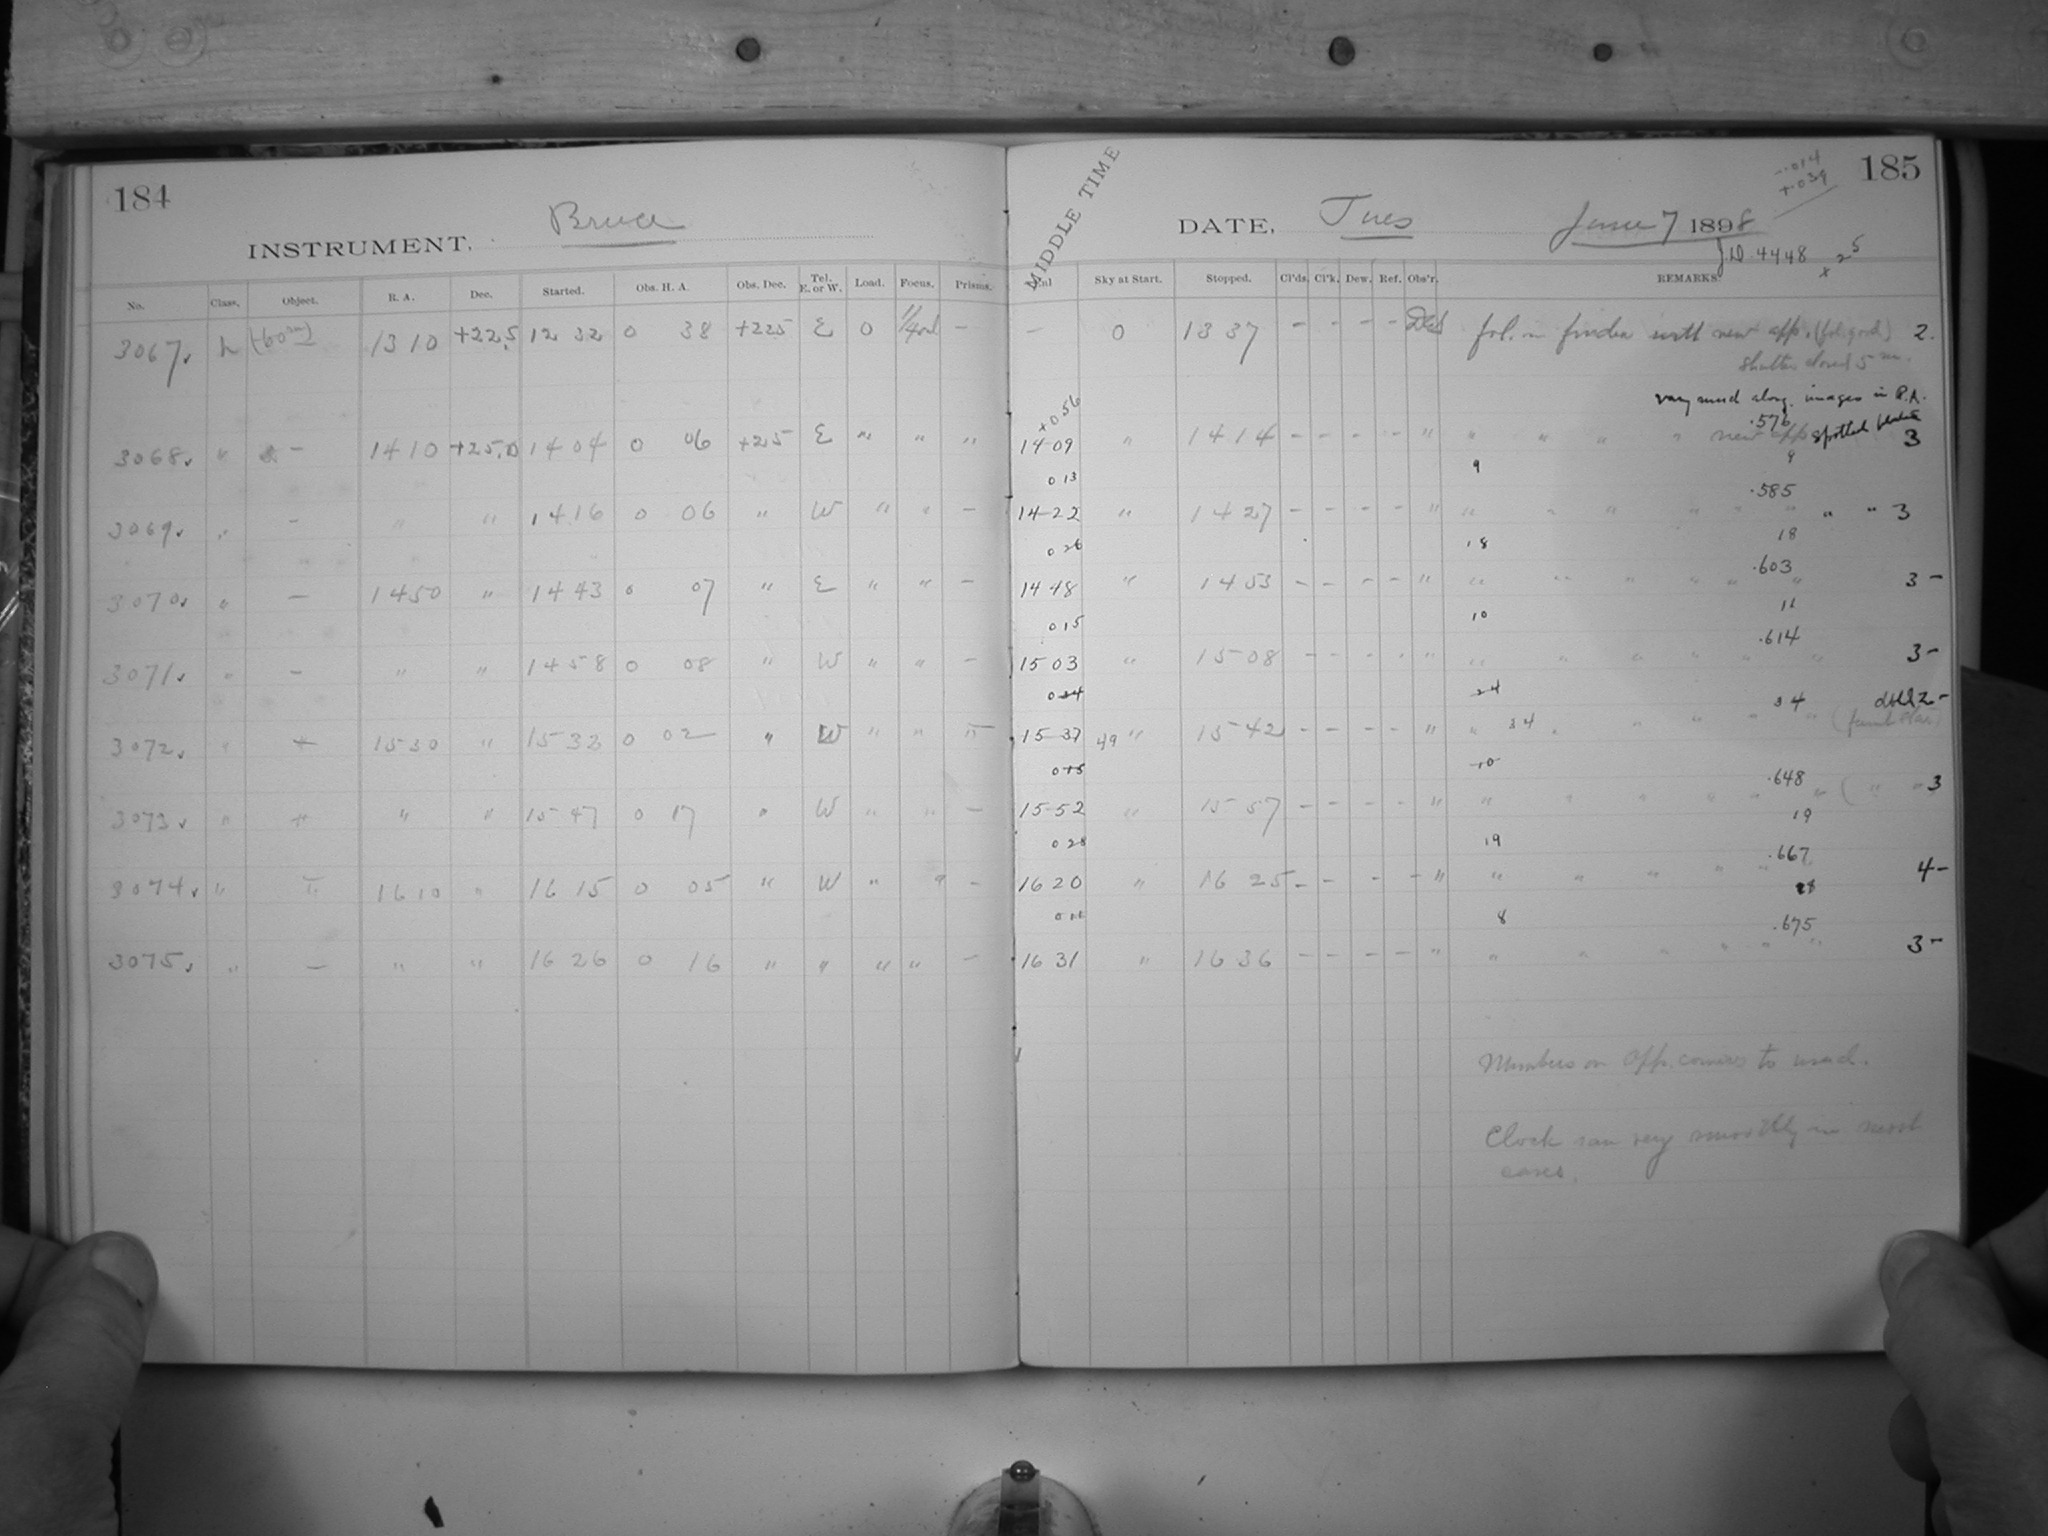 184
INSTRUMENT, Bruce
No. Class. Object. R. A. Dec. Started. Obs. H. A. Obs. Dec. Tel. E. or W. Load. Focus. Prisms.
3067 L (60m) 13 10 +22.5 12 32 0 38 +22.5 E 0 –
3068 " – 14 10 +25.0 14 04 0 06 +25 E " " "
3069 " – " " 14 16 0 06 " W " " –
3070 " – 14 50 " 14 43 0 07 " E " " –
3071 " – " " 14 58 0 08 " W " " –
3072 " 15 30 " 15 32 0 02 " W " "
3073 " " " 15 47 0 17 " W " " –
3074 " 16 10 " 16 15 0 05 " W " " –
3075 " – " " 16 26 0 16 " " " " –
185
-.014
+.039
MIDDLE TIME
DATE, Tues June 7 1898
J.D. 4448
Sky at Start. Stopped. Cl'ds. Cl'k. Dew. Ref. Obs'r. REMARKS.
– 0 13 37 – – – – fol. in finder with new app. (fol. good) 2.
shutter closed 5 m.
very much elong. images in R.A.
+0 56 .576
14 09 " 14 14 – – – – " " " " " new app spotted plate 3
0 13 9 9
.585
14 22 " 14 27 – – – – " " " " " " " " " 3
0 26 18 18
.603
14 48 " 14 53 – – – – " " " " " " " 3 –
0 15 10 11
.614
15 03 " 15 08 – – – – " " " " " " " 3 –
0 34 24 34
15 37 49 " 15 42 – – – – " " 34 " " " "
0 15 10
.648
15 52 " 15 57 – – – – " " " " " " " ( " " 3
0 28 19 19
.667
16 20 " 16 25 – – – – " " " " " " 4 –
8
.675
16 31 " 16 36 – – – – " " " " " " " 3 –
Numbers on app. comes to used.
Clock ran very smoothly in most
cases.